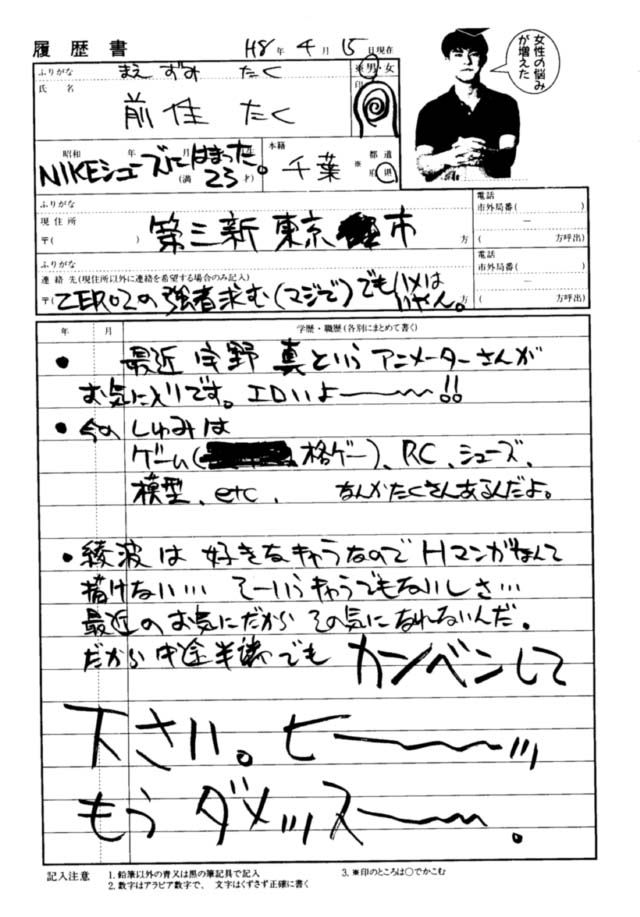 履歴書
H8年 4月 15日現在
女性の悩み
が増えた
ふりがな まえ ずみ たく
※ 男・女
氏名 前住 たく
印
昭和 年 月
NIKEシューズにはまった。
(満 23 才)
本籍 千葉 ※ 都道府県
ふりがな
電話
市外局番( )
現住所 第三新東京 市
〒( ) 方
( 方呼出)
ふりがな
電話
市外局番( )
連絡先(現住所以外に連絡を希望する場合のみ記入)
〒( ZERO2の強者求む(マジで)でもハメはいやん。
( 方呼出)
年 月 学歴・職歴(各別にまとめて書く)
• 最近 宇野 真というアニメーターさんが
お気に入りです。エロいよ〜〜!!
• 今の しゅみは
ゲーム( 格ゲー)、RC、シューズ、
模型、etc, なんかたくさんあるんだよ。
• 綾波は 好きなキャラなので Hマンガなんて
描けない… そーいうキャラでもないしさ…
最近のお気にだから その気になれないんだ。
だから中途半端でも カンベンして
下さい。ヒー〜〜ッ
もう ダメッスー〜。
記入注意 1.鉛筆以外の青又は黒の筆記具で記入 3.※印のところは○でかこむ
2.数字はアラビア数字で、 文字はくずさず正確に書く